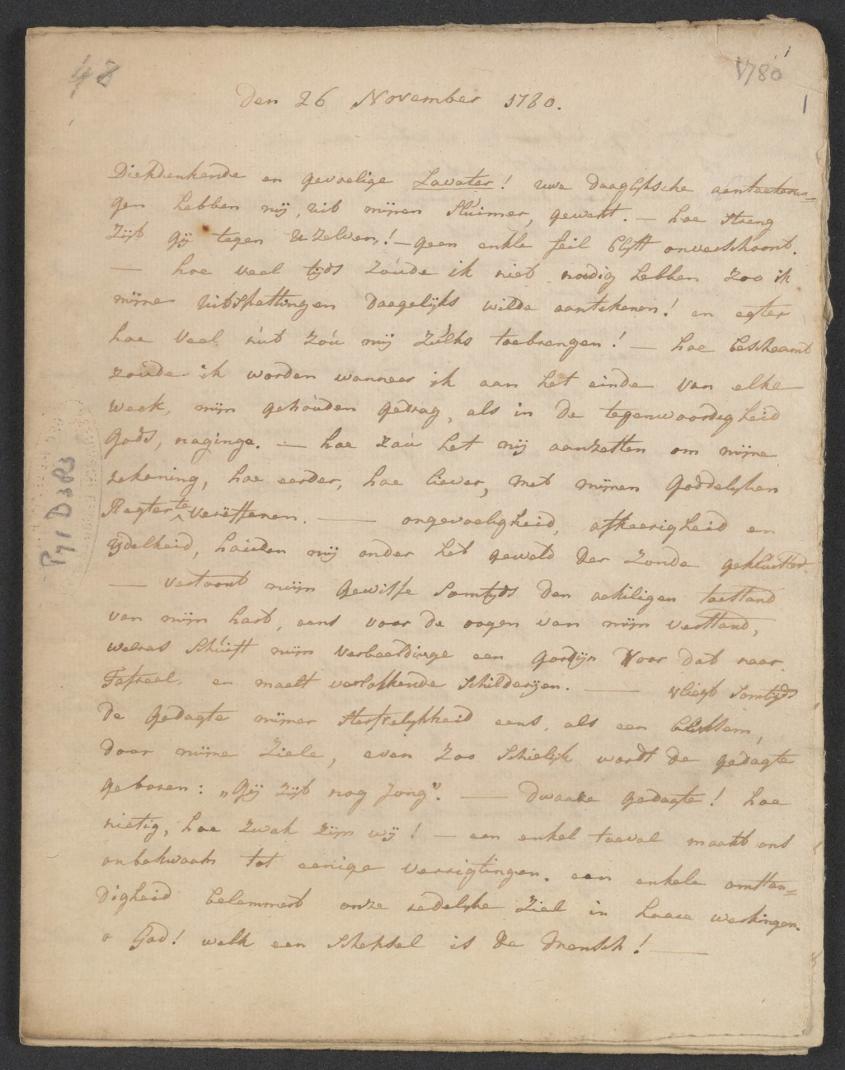 48
1780
1
Den 26 November 1780.
Diepdenkende en gevoelige Lavater! uwe daaglijksche aanteeken=
gen hebben mij, uit mijnen sluimer, gewekt. — hoe streng
zijt gij tegen Uzelven! — geen enkle feil blijft onverschoont.
— hoe veel tijds zoúde ik niet nodig hebben zoo ik
mijne uitspattingen daagelijks wilde aantekenen! en egter
hoe veel nút zoú mij zúlks toebrengen! — hoe bescheamt
zoúde ik worden wanneer ik aan het einde van elke
week, mijn gehoúden gedrag, als in de tegenwoordigheid
Gods, naginge. — hoe zoú het mij aanzetten om mijne
rekening, hoe eerder, hoe liever, met mijnen Goddelijken
Regter te vereffenen. — ongevoeligheid, afkeerigheid en
ijdelheid, hoúden mij onder het geweld der zonde gekluistert.
— vertoont mijn gewisse somtijds den akeligen toestand
van mijn hart, eens voor de oogen van mijn verstand,
welras schúift mijn verbeeldinge een gordijn voor dat naar
Tafreel, en maalt verlokkende schilderijen. — vliegt somtijds
de gedagte mijner sterfelijkheid eens, als een blixem,
door mijne ziele, even zoo schielijk wordt de gedagte
geboren: „Gij zijt nog jong". — dwaaze gedagte! hoe
nietig, hoe zwak zijn wij! — een enkel toeval maakt ons
onbekwaam tot eenige verrigtingen. een enkele omstan=
digheid belemmert onze redelijke ziel in haare werkingen.
o God! welk een schepsel is de Mensch! —